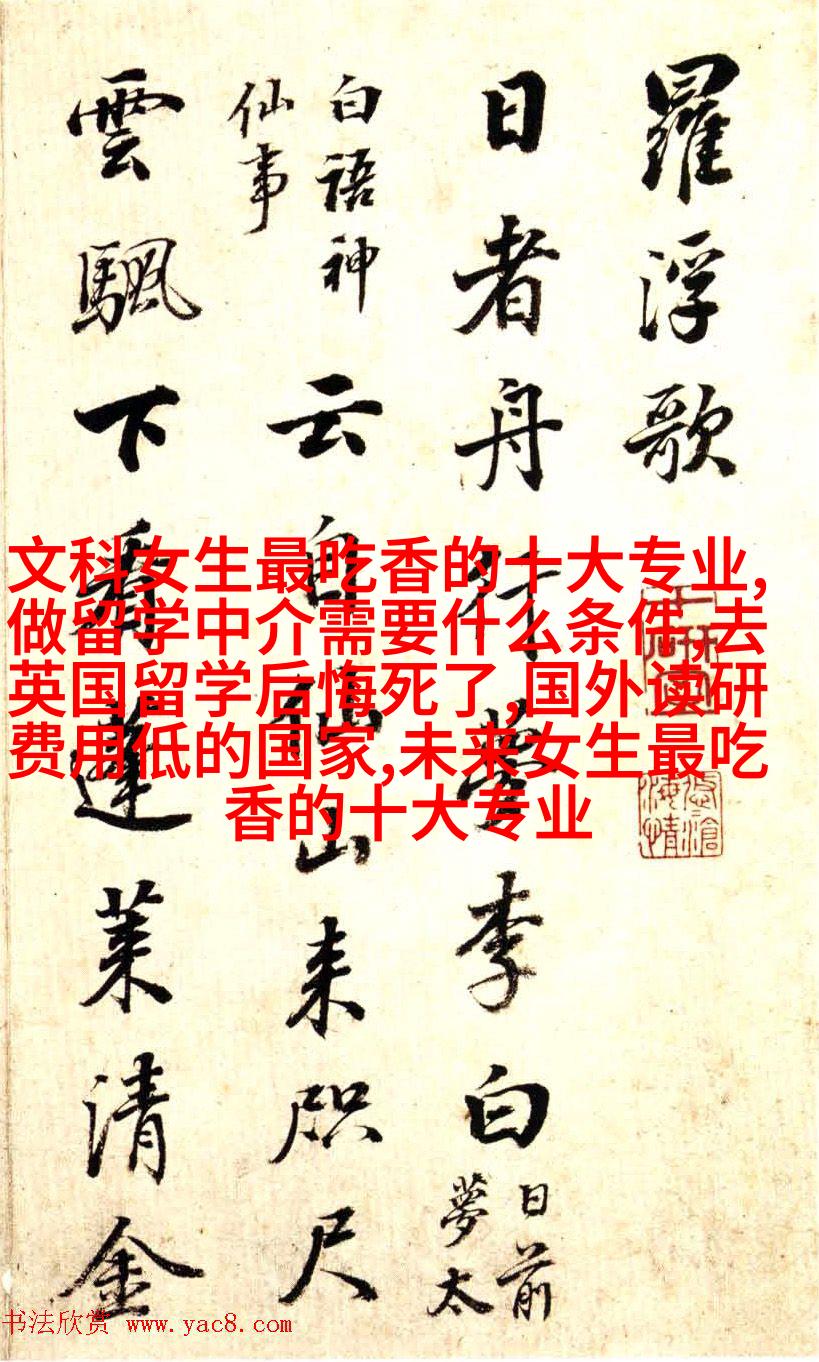 羅浮歌
日者舟行夢李白
日前
夢太
白語神
仙事
云自仙山来咫尺
雲颿下蓬莱清金
文科女生最吃香的十大专业,
做留学中介需要什么条件,去
英国留学后悔死了,国外读研
费用低的国家,未来女生最吃
香的十大专业
书法欣赏 www.yac8.com